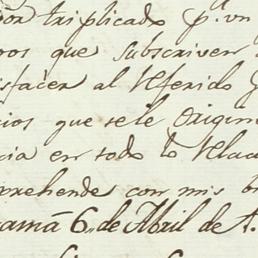 por triplicado p.r un
ros que subscriven
isfacer al Referido
cios que se le Origin
cia en todo lo Relac
prehende con mis b
namá 6,, de Abril de 1.